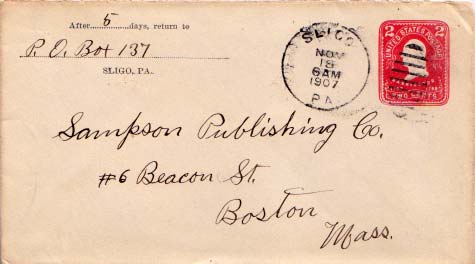 After 5 days, return to
P. O. Box 137
SLIGO, PA.
SLIGO
NOV
18
6 AM
1907
PA.
2 2
UNITED STATES POSTAGE
TWO CENTS
Sampson Publishing Co.
#6 Beacon St.
Boston
Mass.